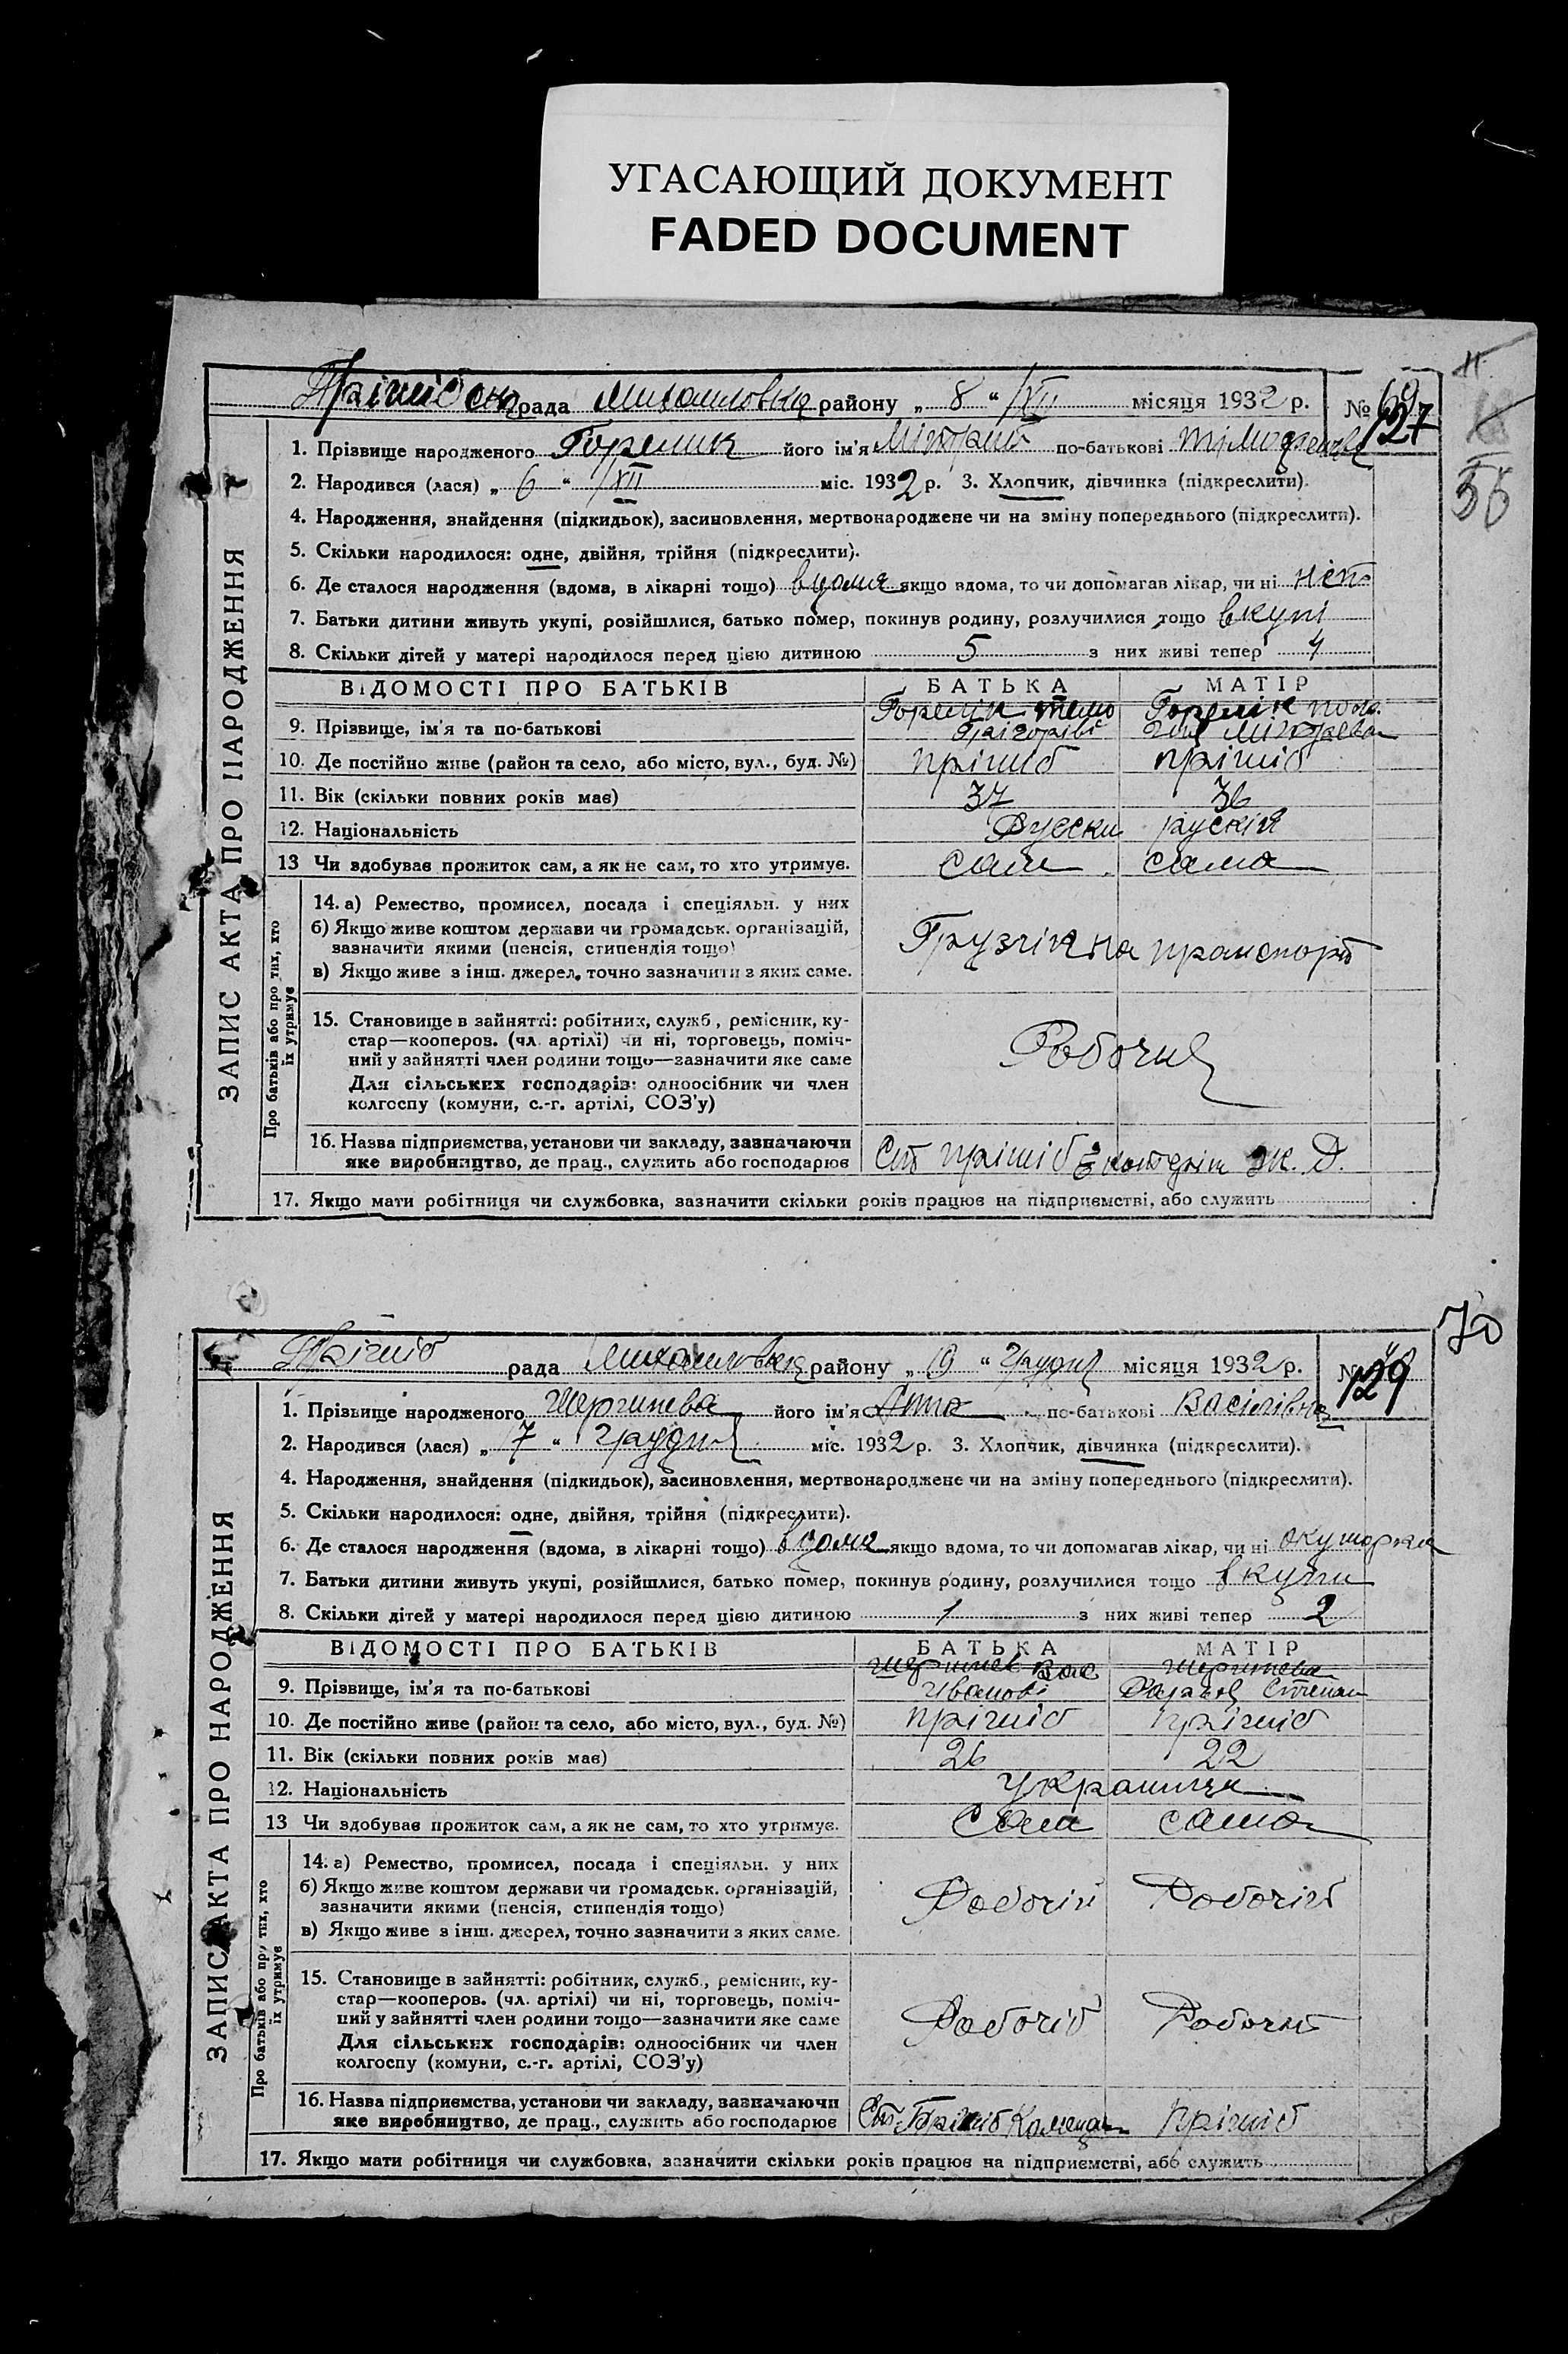 УГАСАЮЩИЙ ДОКУМЕНТ
FADED DOCUMENT
ЗАПИС АКТА ПРО НАРОДЖЕННЯ
рада району „ 8 “ /XII місяця 1932 р. № 69
127
55
1. Прізвище народженого Горелик його ім'я по-батькові
2. Народився (лася) „ 6 “ /XII міс. 1932 р. 3. Хлопчик, дівчинка (підкреслити).
4. Народження, знайдення (підкидьок), засиновлення, мертвонароджене чи на зміну попереднього (підкреслити).
5. Скільки народилося: одне, двійня, трійня (підкреслити).
6. Де сталося народження (вдома, в лікарні тощо) вдома якщо вдома, то чи допомагав лікар, чи ні
7. Батьки дитини живуть укупі, розійшлися, батько помер, покинув родину, розлучилися тощо вкупі
8. Скільки дітей у матері народилося перед цією дитиною 5 з них живі тепер 4
ВІДОМОСТІ ПРО БАТЬКІВ БАТЬКА МАТІР
9. Прізвище, ім'я та по-батькові
10. Де постійно живе (район та село, або місто, вул., буд. №) прішиб прішиб
11. Вік (скільки повних років має) 37 36
12. Національність Русски рускій
13 Чи здобував прожиток сам, а як не сам, то хто утримує. сам сама
Про батьків або про тих, хто їх утримує
14. а) Ремество, промисел, посада і спеціяльн. у них
б) Якщо живе коштом держави чи громадськ. організацій,
зазначити якими (пенсія, стипендія тощо)
в) Якщо живе з інш. джерел, точно зазначити з яких саме.
Грузчік на транспорт
15. Становище в зайнятті: робітник, служб., ремісник, ку-
стар—кооперов. (чл. артілі) чи ні, торговець, поміч-
ний у зайнятті член родини тощо—зазначити яке саме
Для сільських господарів: одноосібник чи член
колгоспу (комуни, с.-г. артілі, СОЗ'у)
Робочий
16. Назва підприємства, установи чи закладу, зазначаючи
яке виробництво, де прац., служить або господарює Ст прішіб ж. Д.
17. Якщо мати робітниця чи службовка, зазначити скільки років працює на підприємстві, або служить
70
ЗАПИС АКТА ПРО НАРОДЖЕННЯ
Прішиб рада району „ 9 “ Грудня місяця 1932 р. №
129
1. Прізвище народженого його ім'я Анна по-батькові Васілівна
2. Народився (лася) „ 7 “ Грудня міс. 1932 р. 3. Хлопчик, дівчинка (підкреслити).
4. Народження, знайдення (підкидьок), засиновлення, мертвонароджене чи на зміну попереднього (підкреслити).
5. Скільки народилося: одне, двійня, трійня (підкреслити).
6. Де сталося народження (вдома, в лікарні тощо) вдома якщо вдома, то чи допомагав лікар, чи ні акушорка
7. Батьки дитини живуть укупі, розійшлися, батько помер, покинув родину, розлучилися тощо вкупи
8. Скільки дітей у матері народилося перед цією дитиною 1 з них живі тепер 2
ВІДОМОСТІ ПРО БАТЬКІВ БАТЬКА МАТІР
9. Прізвище, ім'я та по-батькові
10. Де постійно живе (район та село, або місто, вул., буд. №) прішиб прішиб
11. Вік (скільки повних років має) 26 22
12. Національність
13 Чи здобував прожиток сам, а як не сам, то хто утримує. Сам сама
Про батьків або про тих, хто їх утримує
14. а) Ремество, промисел, посада і спеціяльн. у них
б) Якщо живе коштом держави чи громадськ. організацій,
зазначити якими (пенсія, стипендія тощо)
в) Якщо живе з інш. джерел, точно зазначити з яких саме.
Робочій Робочій
15. Становище в зайнятті: робітник, служб., ремісник, ку-
стар—кооперов. (чл. артілі) чи ні, торговець, поміч-
ний у зайнятті член родини тощо—зазначити яке саме
Для сільських господарів: одноосібник чи член
колгоспу (комуни, с.-г. артілі, СОЗ'у)
Робочій Робочій
16. Назва підприємства, установи чи закладу, зазначаючи
яке виробництво, де прац., служить або господарює Ст. Прішіб
17. Якщо мати робітниця чи службовка, зазначити скільки років працює на підприємстві, або служить